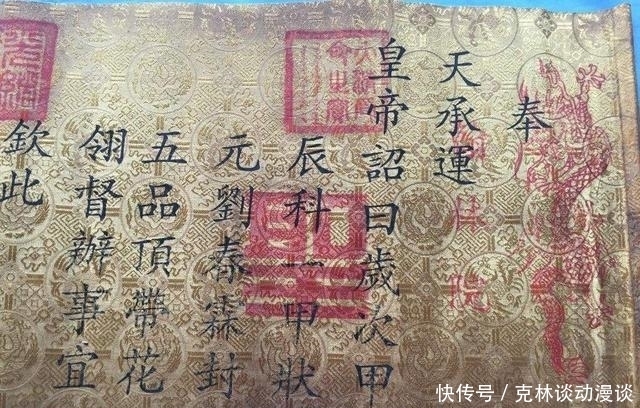 奉
天承運
皇帝詔曰歲次甲
辰科一甲狀
元劉春霖封
五品頂帶花
翎督辦事宜
欽此
快传号／克林谈动漫谈